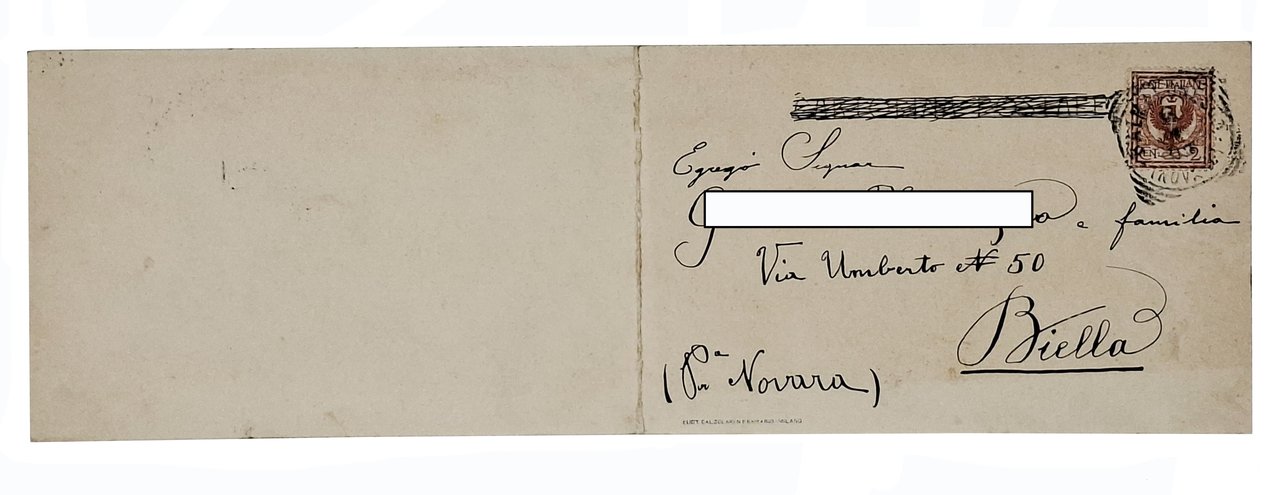 POSTE ITALIANE
CENT. 2
Egregio Signor
e familia
Via Umberto N 50
Biella
(Pr.a Novara)
MILANO